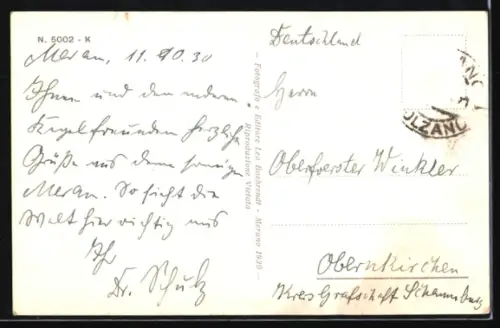 N. 5002 - K
Meran, 11. 10. 30
Ihnen und den anderen
Kegelfreunden herzliche
Grüße aus dem sonnigen
Meran. So sieht die
Welt hier richtig aus
Ihr
Dr. Schulz
- Fotografo e Editore Leo Baehrendt - Merano 1929 -
Riproduzione Vietata
Deutschland
Herrn
OLZANO
Oberförster Winkler
Obernkirchen
Kreis Grafschaft Schaumburg